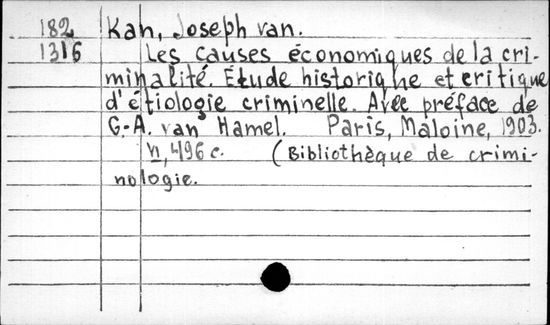 182 Kan, Joseph van.
1316 Les causes économiques de la cri-
minalité. Étude historique et critique
d'étiologie criminelle. Avec préface de
G.-A. van Hamel. Paris, Maloine, 1903.
VI, 496 c. (Bibliothèque de crimi-
nologie.